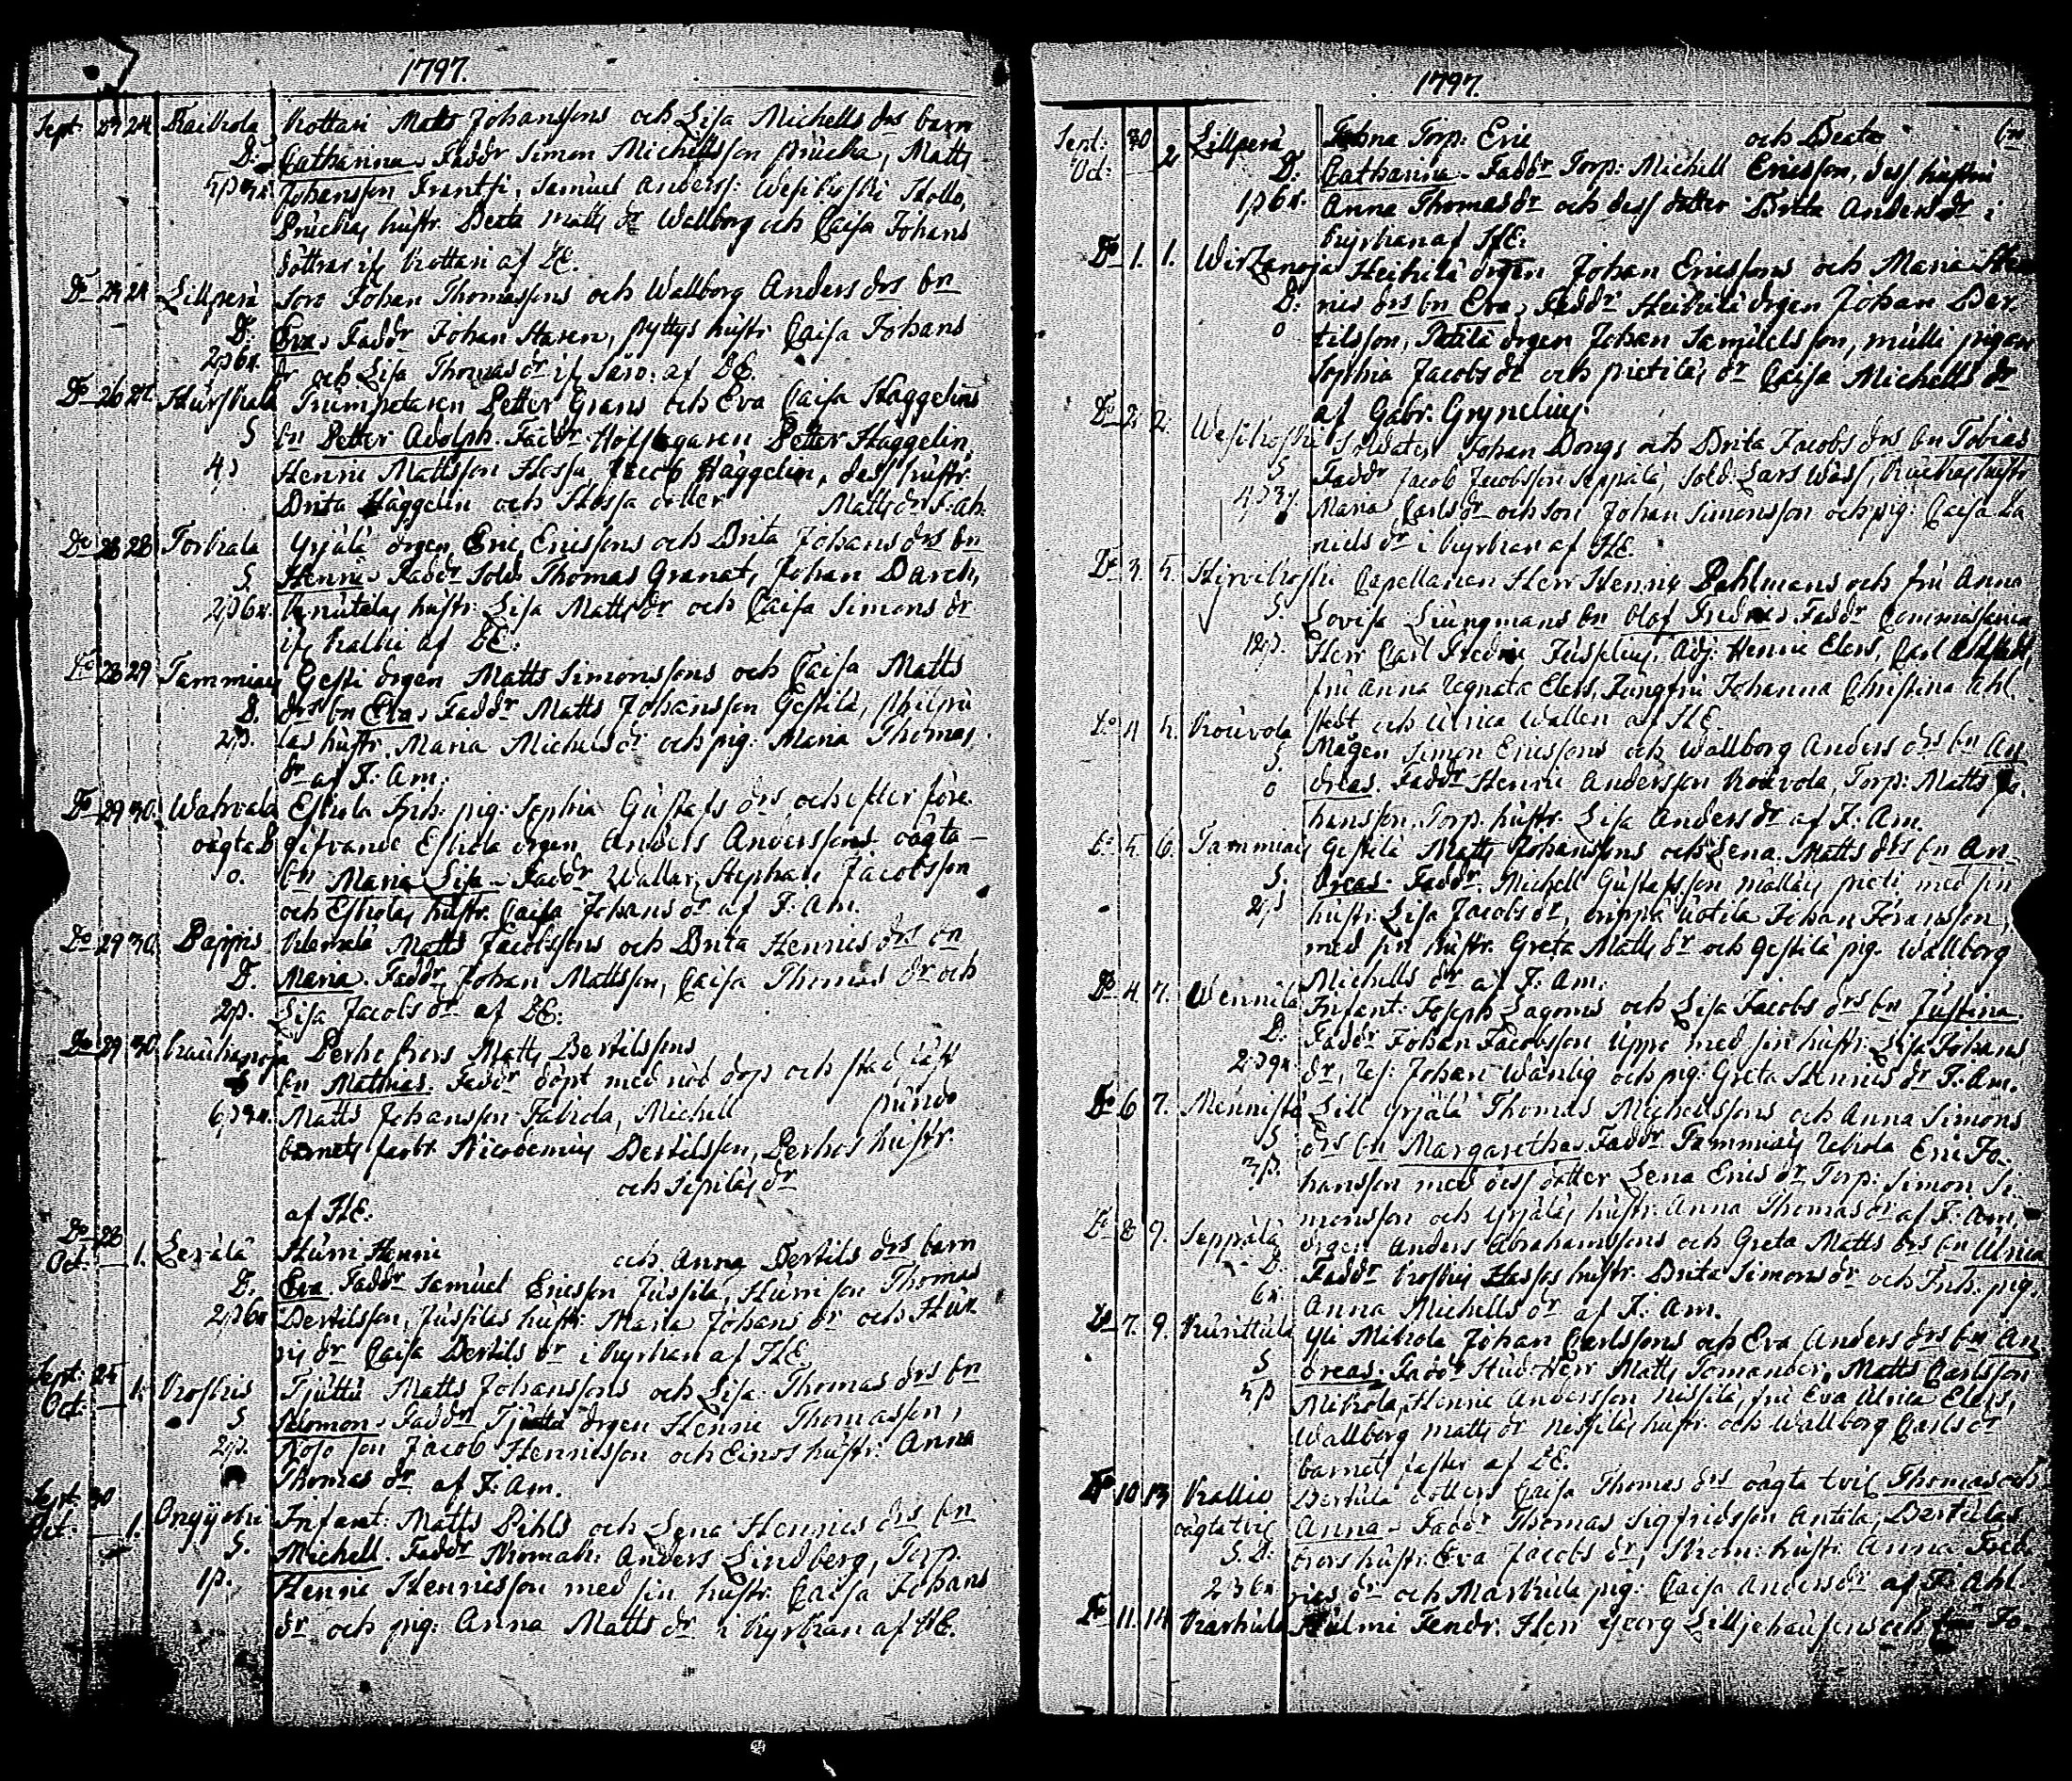 1797.
Sept: 24 24 Raikola Kottari Matts Johanssons och Lisa Michells drs barn
D. Catharina. Faddr Simon Michellsson Prucka, Matts
Johansson Frantsi, Samuel Anderss: Wesikoski Skollo,
Pruckas hustr. Beata Matts dr Wallborg och Caisa Johans
döttrar if. Kottari af DE.
Do 24 24 Lillperä Soro Johan Thomassons och Wallborg Anders drs bn
D. Eva. Faddr Johan Staren, Pyttys hustr Caisa Johans
2p6r. dr och Lisa Thomasdr if. Saro: af DE.
Do 26 27. Trumpetaren Petter Grans och Eva Caisa Häggelins
S bn Petter Adolph. Faddr Petter Häggelin,
4p Henric Mattsson Hossa, Jacob Häggelin, dess hustr.
Brita Häggelin och Hossa dotter Matts dr F: ah.
Do 28 28 Torkala Yrjälä drgen Eric Ericssons och Brita Johans drs bn
S. Henric. Faddr Sold: Thomas Granat, Johan Darck,
2p6r. Knutilas hustr. Lisa Matts dr och Caisa Simons dr
if. Kallie af DE:
Do 28 29 Tammiais Gesti drgen Matts Simonssons och Caisa Matts
D. drs bn Eva. Faddr Matts Johansson Gestilä,
2p. las hustr. Maria Michels dr och pig: Maria Thomas
dr af F: Am.
Do 29 30. Wahvala Eskola Inh: pig: Sophia Gustafs drs, och efter före
oägta D gifvande Eskola drgen Anders Anderssons oägta
o. bn Maria Lisa. Faddr Wallar, Stephan Jacobsson
och Eskolas hustr. Caisa Johans dr af F: Am.
Do 29 30. Pappis Matts Jacobssons och Brita Henrics drs bn
D. Maria. Faddr Johan Mattsson, Caisa Thomas dr och
2p. Lisa Jacobs dr af DE:
Do 29 30 Perho brors Matts Bertilssons
bn Matthias. Faddr döpt med nöd dop och
Matts Johansson Jakola, Michell
barnets farbr. Nicodemus Bertilsson, Perhos hustr.
och Sipiläs dr
af HE.
Do 28
Oct: 1. Leiälä Hurri Henric och Anna Bertils drs barn
D. Eva Faddr Samuel Ericsson Jussila, Hurri son Thomas
2p6r Bertilsson, Jussilas hustr. Maria Johans dr och Hur
ris dr Caisa Bertils dr i Kyrkan af HE
Sept: 25
Oct: 1. Koskis Tjuttu Matts Johanssons och Lisa Thomas drs bn
S Salomon. Faddr Tjuttu drgen Henric Thomasson,
2p. Rojo son Jacob Henricsson och Einos hustr: Anna
Thomas dr af F: Am.
Sept: 30
Oct: 1. Infant: Matts Pihls och Lena Henrics drs bn
S. Michell. Faddr Anders Lindberg, Torp.
1p. Henric Henricsson med sin hustr. Caisa Johans
dr och pig: Anna Matts dr i Kyrkan af HE.
1797.
Sept: 30 Lillperä Torp: Eric och Beata bn
Oct: 2 D. Catharina. Faddr Torp: Michell Ericsson, dess hustru
1p6r. Anna Thomasdr och dess dotter Brita Anders dr i
kyrkan af HE:
Do 1. 1. Wirzanoja Heikilä drgen Johan Ericssons och Maria Hen
D: rics drs bn Eva. Faddr Heikilä drgen Johan Ber
o tilsson, Pätilä drgen Johan Samuelsson, mulli pigan
Sophia Jacobs dr och pietiläs dr Caisa Michells dr
af Gabr. Grynelius.
Do 2. 2. Wesikoski Soldaten Johan Dongs och Brita Jacobs drs bn Tobias
S Faddr Jacob Jacobsson Seppälä, Sold: Lars Wass, hustr
Maria Carls dr och son Johan Simonsson och pig: Caisa Da
niels dr i kyrkan af HE.
Do 3. 5. Hirvikoski Capellanen Herr Henric Pehlmans och fru Anna
S. Lovisa Ljungmans bn Olof Fredric. Faddr Commissarien
12p. Herr Carl Fredric Jusselius, Adj: Henric Elers, Carl Ahlstedt,
fru Anna Agnata Elers, Jungfru Johanna Christina Ahl
stedt och Ulrica Wallen af HE
Do 4 5. Kouvola Mågen Simon Ericssons och Wallborg Anders drs bn An
S. dreas. Faddr Henric Andersson Kouvola, Torp: Matts Jo
o hansson, Torp: hustr. Lisa Anders dr af F: Am.
Do 5. 6. Tammiais Gestilä Matts Johanssons och Lena Matts drs bn An
S. dreas. Faddr. Michell Gustafsson mallais med sin
2p hustr. Lisa Jacobs dr, Johan Göransson,
med sin hustr. Greta Matts dr och Gestilä pig. Wallborg
Michells dr af F: Am.
Do 4. 7. Wennilä Infant: Joseph Lagoms och Lisa Jacobs drs bn Justina
D. Faddr Johan Jacobsson Uppe med sin hustr. Lisa Johans
dr, Johan Wänlig och pig: Greta Henrics dr F: Am.
Do 6 7. Mennistä Lill Yrjälä Thomas Michelssons och Anna Simons
S drs bn Margaretha. Faddr. Tammiais Uckola Eric Jo
3p. hansson med dess dotter Lena Erics dr Torp: Simon Si
monsson och Yrjäläs hustr. Anna Thomasdr af F: Am.
Do 8 9. Seppälä drgen Anders Abrahamssons och Greta Matts drs bn Ulrica
D. Faddr hustr. Brita Simonsdr och Inh. pig.
6r. Anna Michells dr af F: Am.
Do 7. 9. Kurittula Yli Mikola Johan Carlssons och Eva Anders drs bn An
S dreas. Faddr Stud: Herr Matts Tomander, Matts Carlsson
Mikola, Henric Andersson Nespilä, fru Eva Ulrica Elers,
Wallborg Matts dr Nespiläs hustr. och Wallborg Carls dr
barnets faster af DE.
Do 10. 13 Kallio Bertilä dotters Caisa Thomas drs oägta tvil Thomas och
oägta tvil Anna. Faddr Thomas Sigfridsson Antila, Bertilas
S. D. brors hustr. Eva Jacobs dr, hustr. Anna Fred
2p6r. rics dr och Markula pig: Caisa Anders dr af F: Ahl.
Do 11. 14 Karkula Hulmi Fendr. Herr Georg Lilljehaufens och Jo